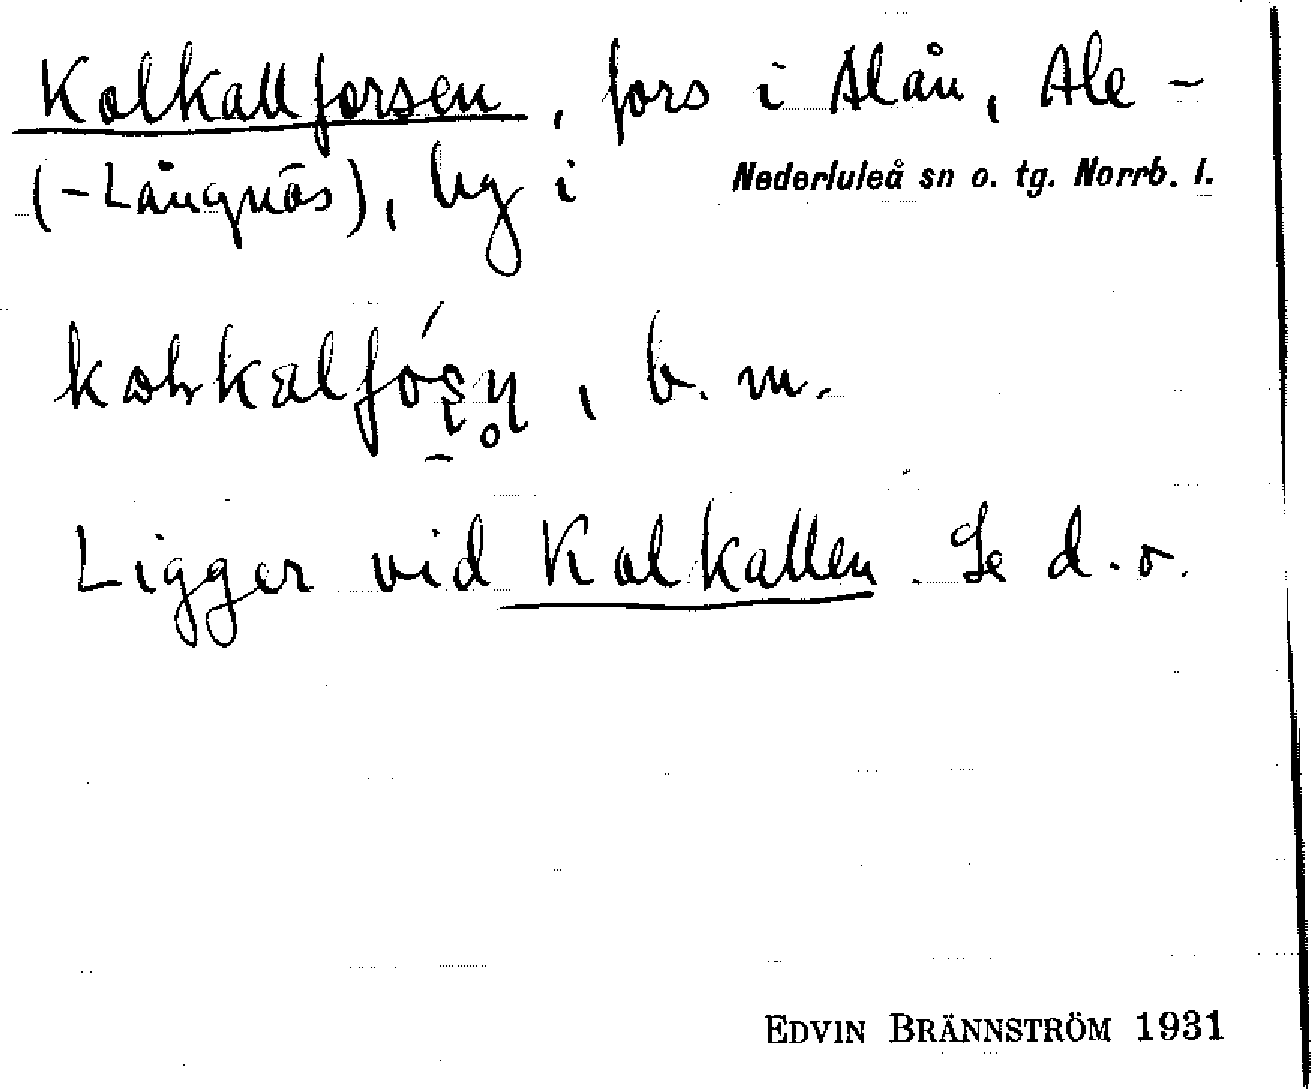 Kolkallforsen, fors i Alån, Ale -
(-Långnäs), by i Nederluleå sn o. tg. Norrb. l.
b. m.
Ligger vid Kolkallen. Se d. o.
EDVIN BRÄNNSTRÖM 1931